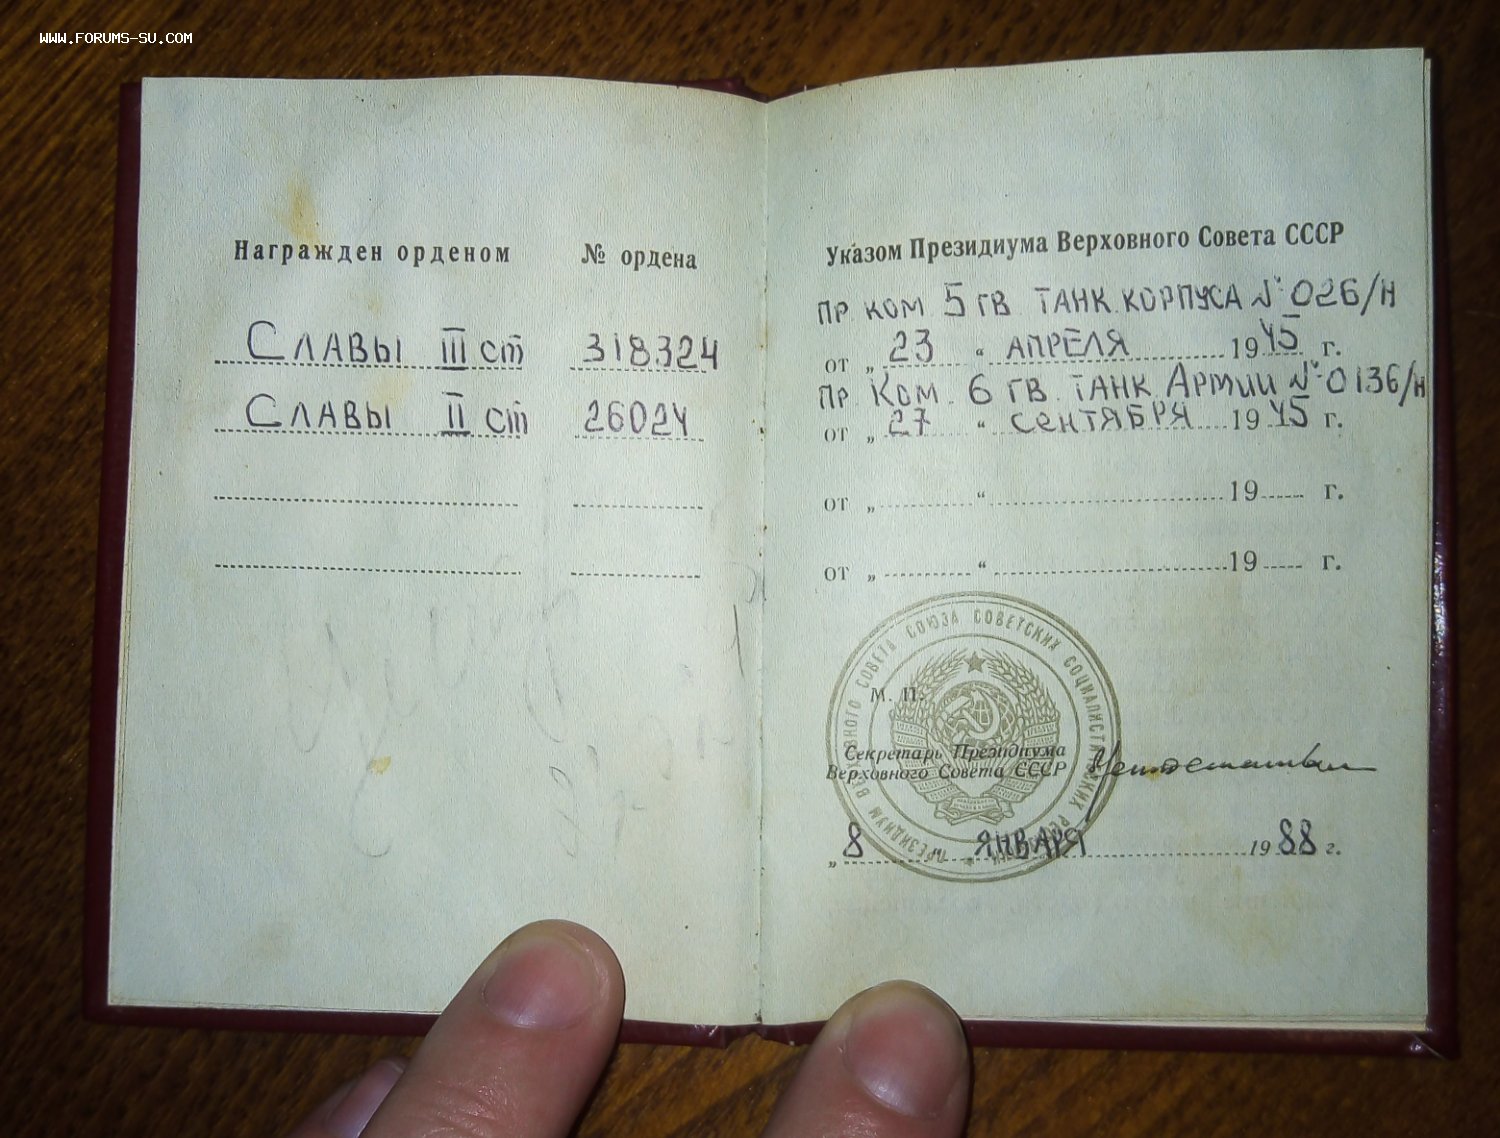 WWW.FORUMS-SU.COM
Награжден орденом № ордена
Славы III ст 318324
Славы II ст 26024
Указом Президиума Верховного Совета СССР
пр ком 5 гв. танк. корпуса №026/н
от „ 23 “ апреля 1945 г.
пр. Ком. 6 гв. танк. Армии №0136/н
от „ 27 “ сентября 1945 г.
от „ “ 19 г.
от „ “ 19 г.
ПРЕЗИДИУМ ВЕРХОВНОГО СОВЕТА СОЮЗА СОВЕТСКИХ СОЦИАЛИСТИЧЕСКИХ РЕСПУБЛИК
М. П.
Секретарь Президиума
Верховного Совета СССР
„ 8 “ января 1988 г.